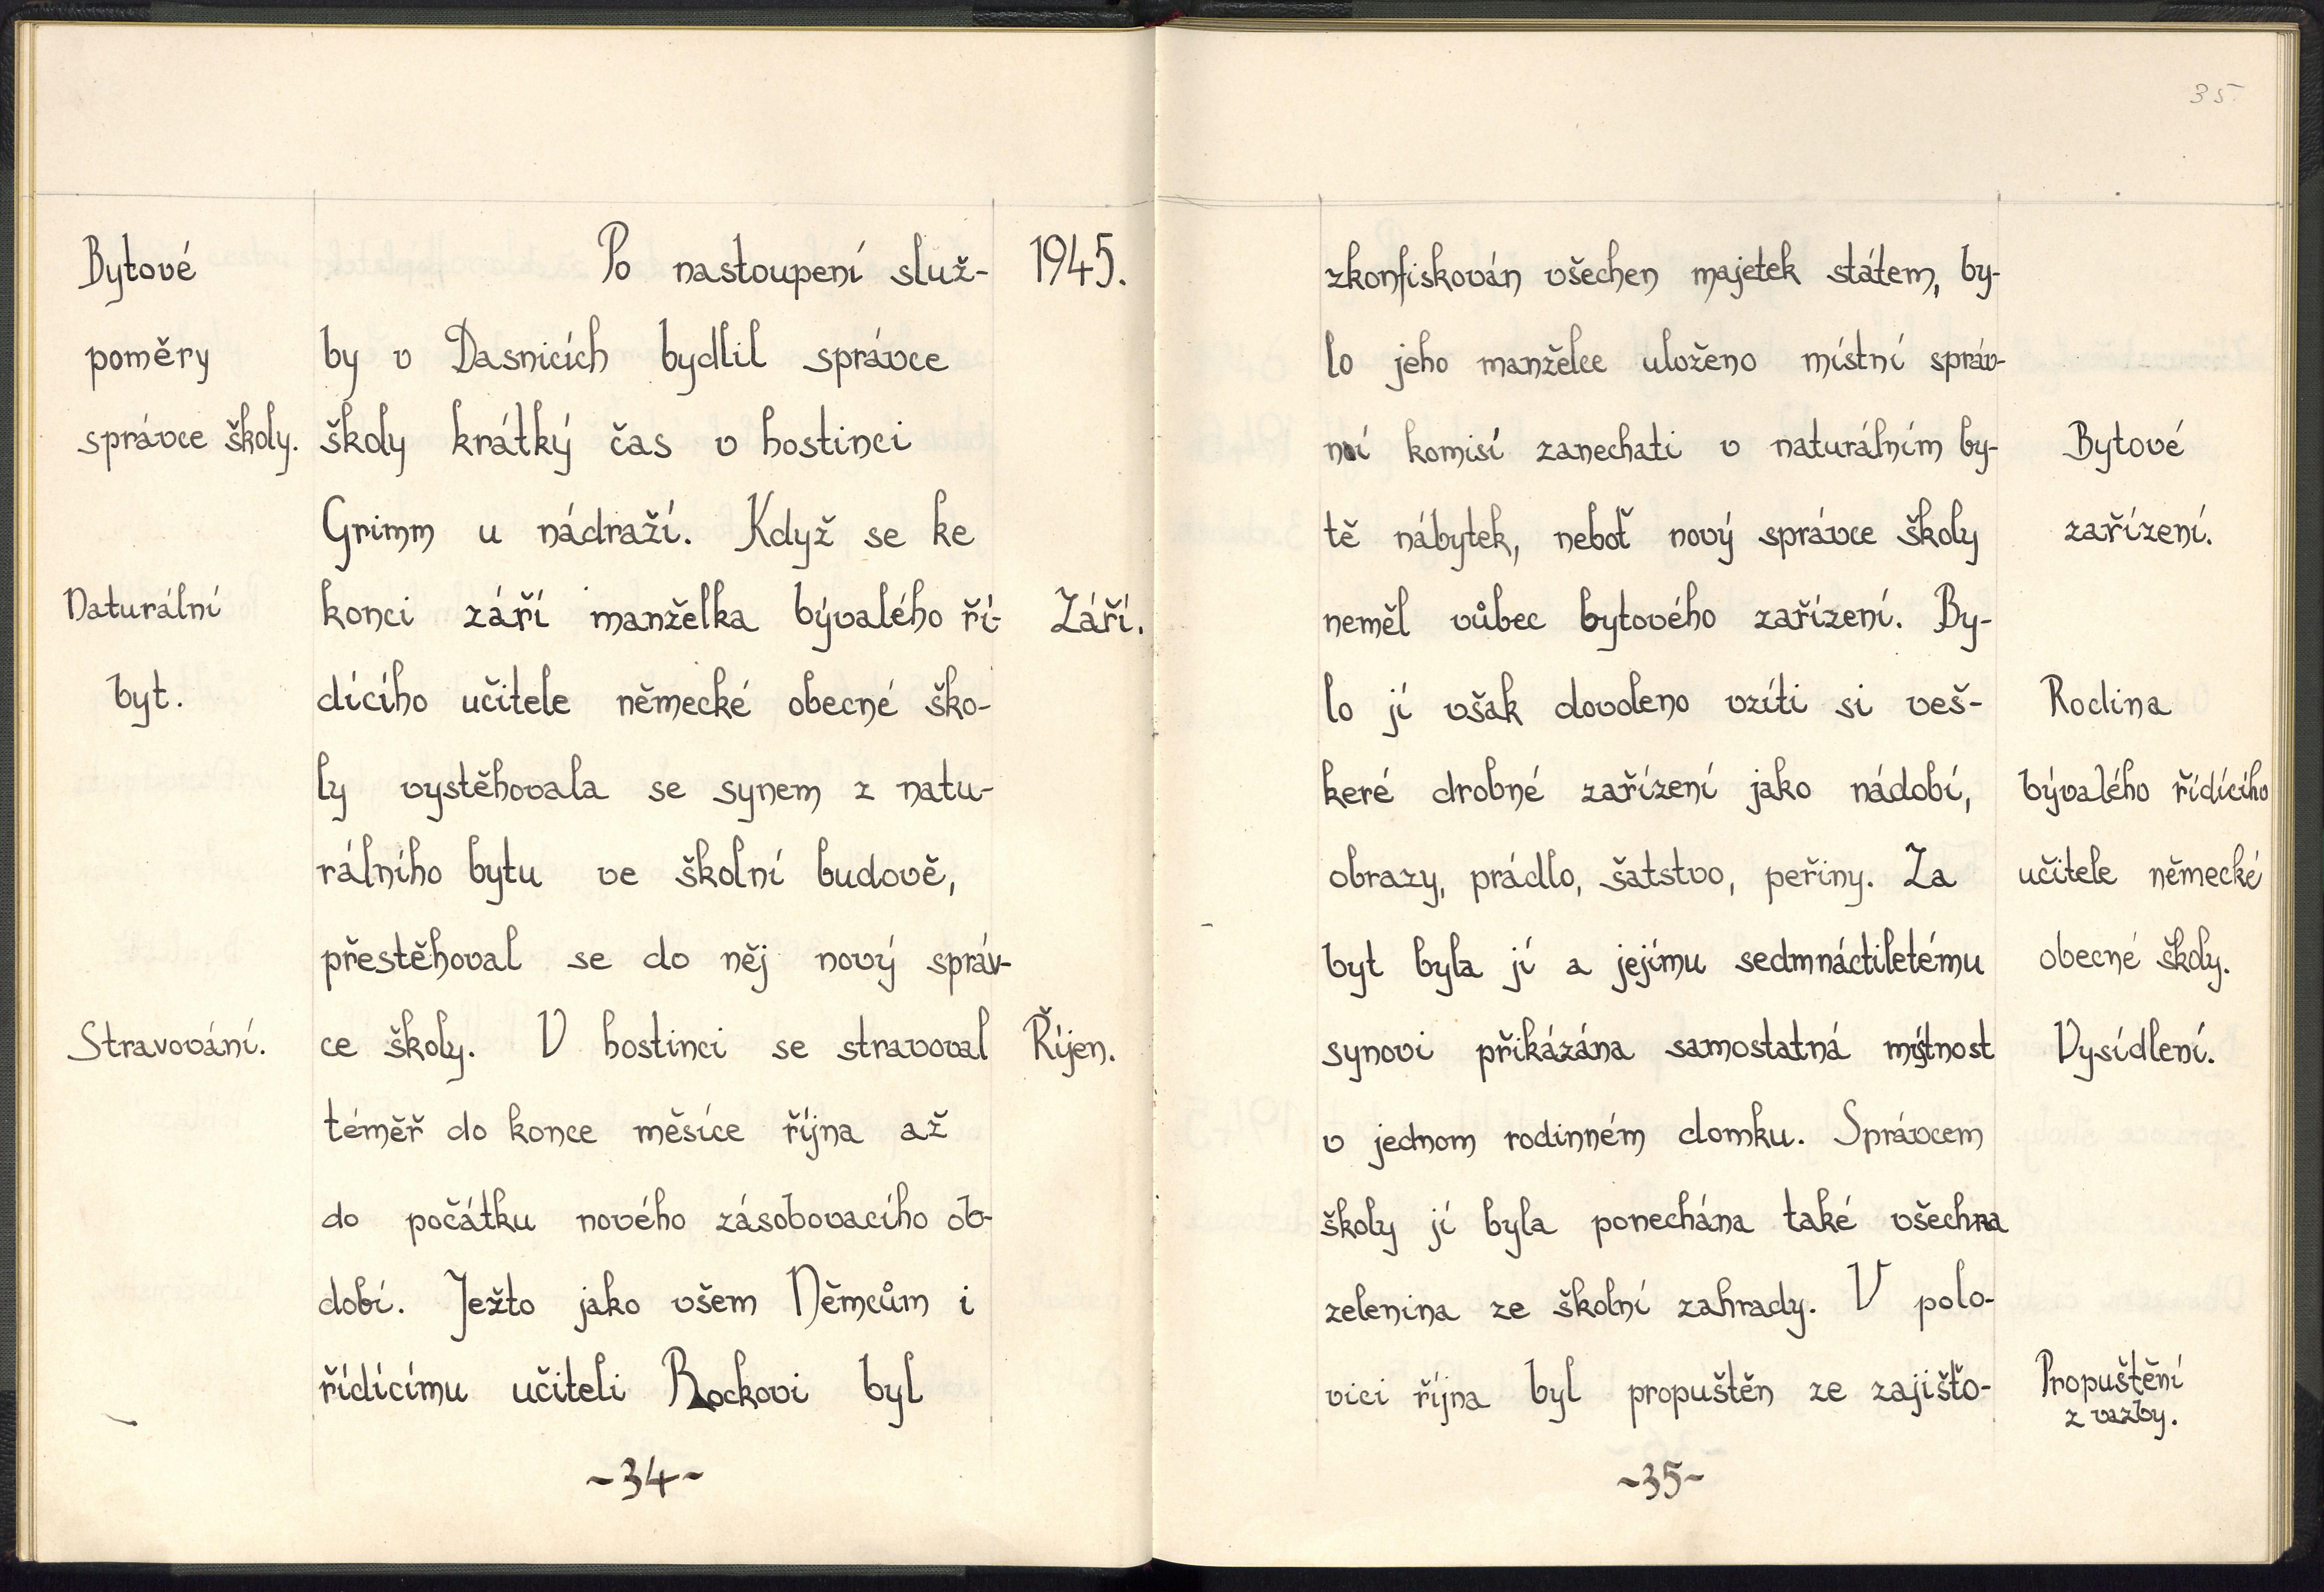 Bytové
poměry
správce školy.
Po nastoupení služ- 1945.
by v Dasnicích bydlil správce
školy krátký čas v hostinci
Grimm u nádraží. Když se ke
Naturální
byt.
konci září manželka bývalého ří- Září.
dícího učitele německé obecné ško-
ly vystěhovala se synem z natu-
rálního bytu ve školní budově,
přestěhoval se do něj nový správ-
Stravování.
ce školy. V hostinci se stravoval Říjen.
téměř do konce měsíce října až
do počátku nového zásobovacího ob-
dobí. Ježto jako všem Němcům i
řídícímu učiteli Rockovi byl
~34~
35.
zkonfiskován všechen majetek státem, by-
lo jeho manželce uloženo místní správ-
ní komisí zanechati v naturálním by-
tě nábytek, neboť nový správce školy
Bytové
zařízení.
neměl vůbec bytového zařízení. By-
lo jí však dovoleno vzíti si veš-
keré drobné zařízení jako nádobí,
obrazy, prádlo, šatstvo, peřiny. Za
byt byla jí a jejímu sedmnáctiletému
Rodina
bývalého řídícího
učitele německé
obecné školy.
synovi přikázána samostatná místnost
Vysídlení.
v jednom rodinném domku. Správcem
školy jí byla ponechána také všechna
zelenina ze školní zahrady. V polo-
vici října byl propuštěn ze zajišťo-
Propuštění
z vazby.
~35~